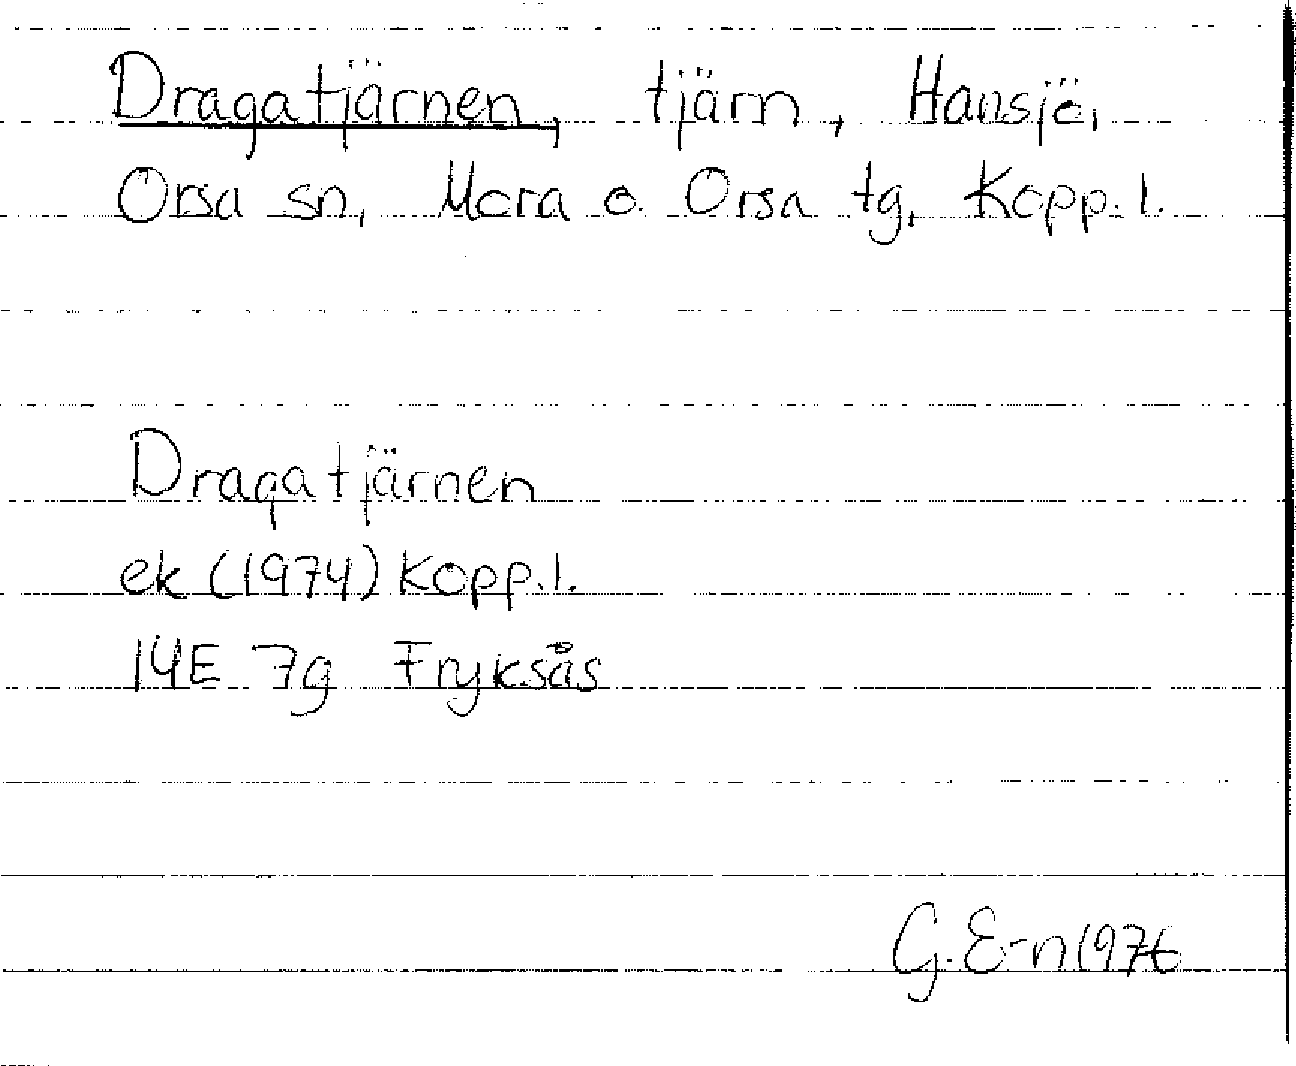 Dragatjärnen, tjärn, Hansjö,
Orsa sn, Mora o. Orsa tg, Kopp. l.
Dragatjärnen
ek (1974) Kopp. l.
14E 7g Fryksås
G. E-n 1976